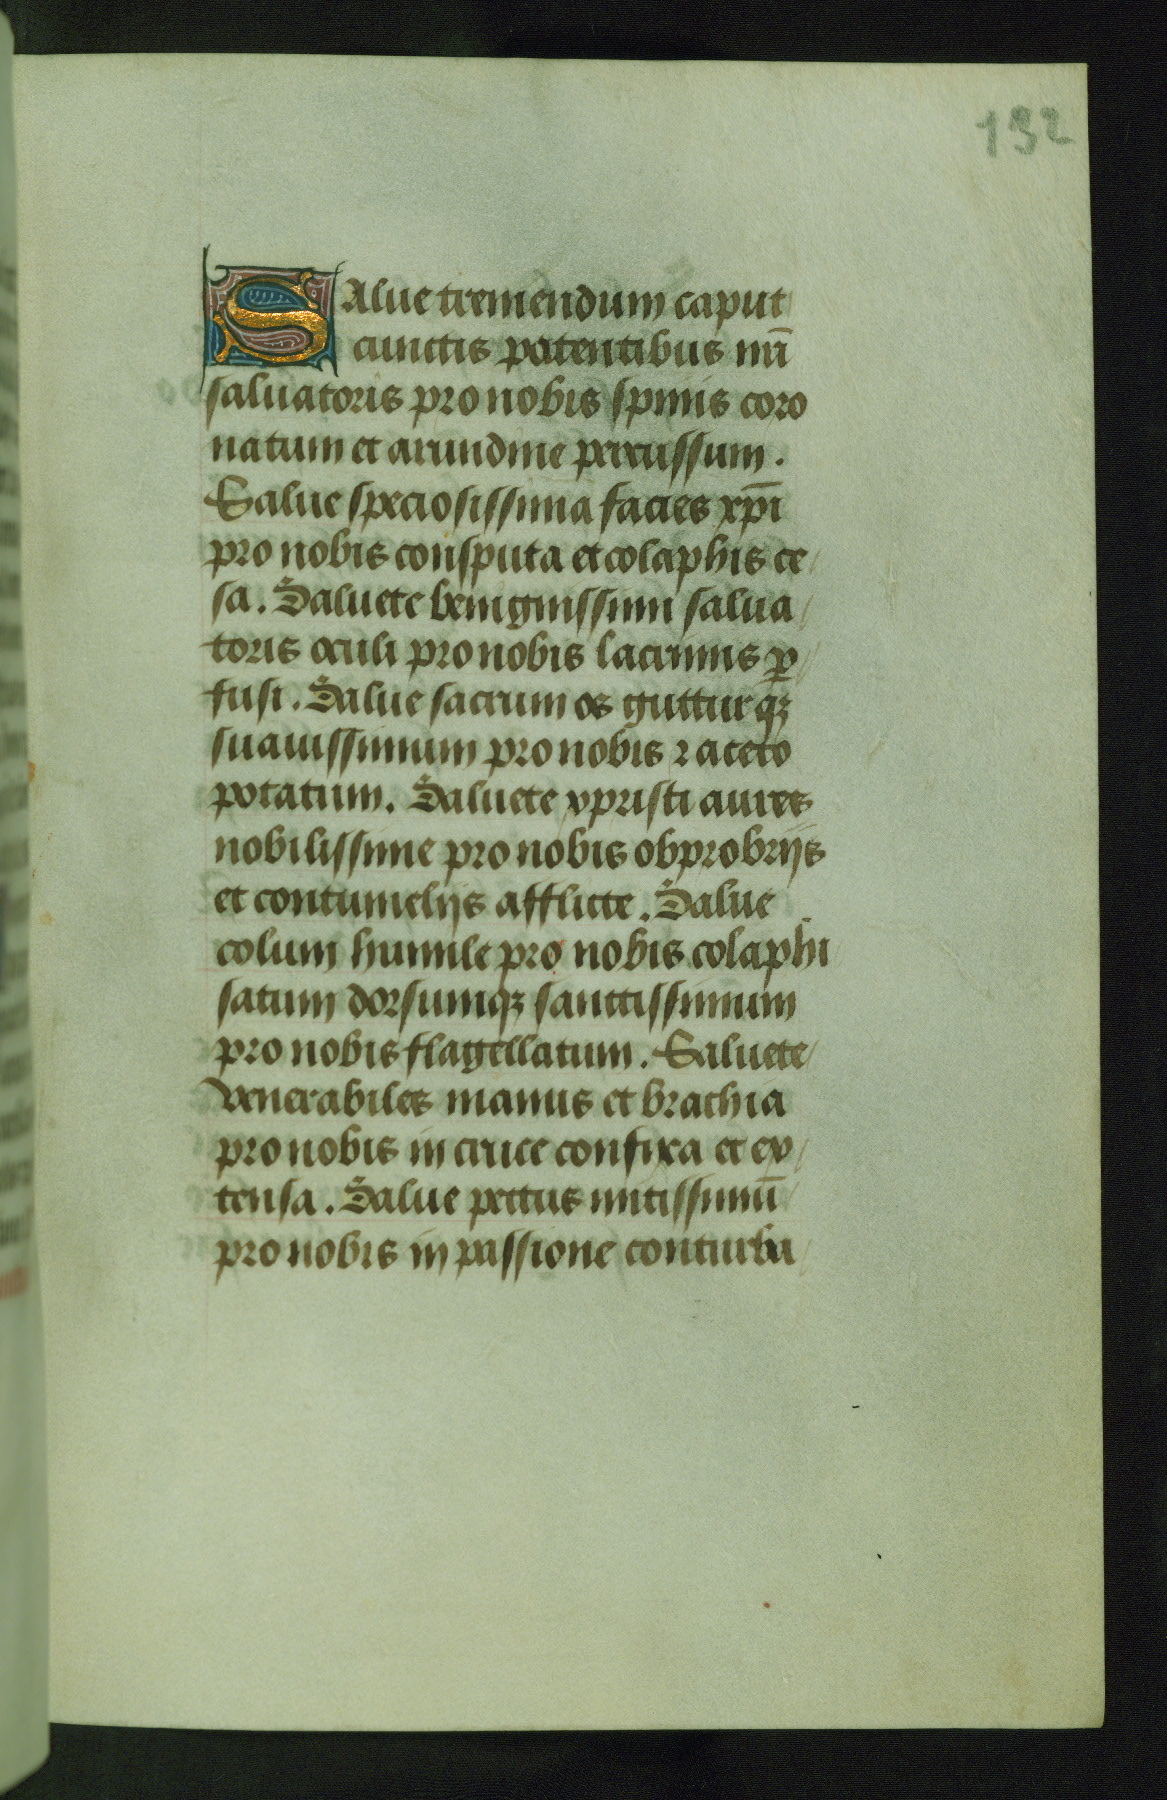 132
Salue tremendum caput
cunctis potentibus nr̄i
saluatoris pro nobis spinis coro
natum et arundine percussum.
Salue speciosissima facies xp̄i
pro nobis consputa et colaphis ce
sa. Saluete benignissimi salua
toris oculi pro nobis lacrimis ꝑ
fusi. Salue sacrum os gutturqꝫ
suauissimum pro nobis ⁊ aceto
potatum. Saluete xpristi aures
nobilissime pro nobis obprobrijs
et contumelijs afflicte. Salue
colum humile pro nobis colaphi
satum dorsumqꝫ sanctissimum
pro nobis flagellatum. Saluete
venerabiles manus et brachia
pro nobis in cruce confixa et ex
tensa. Salue pectus mitissimū
pro nobis in passione conturba